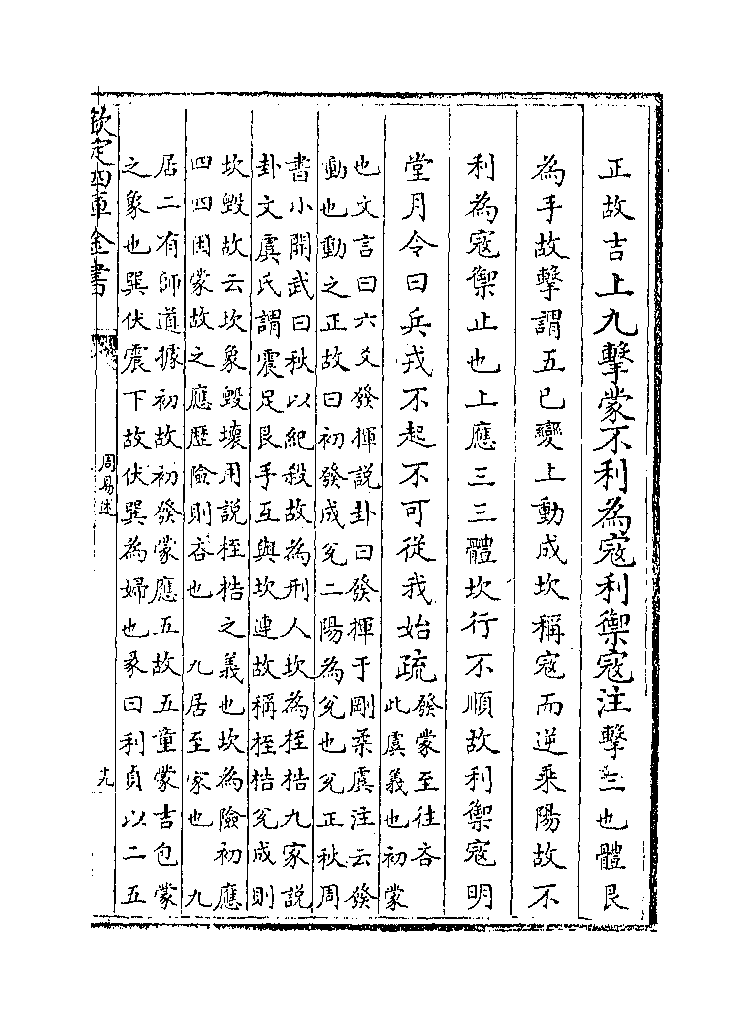 正故吉上九擊蒙不利為寇利禦寇注擊三也體艮
為手故擊謂五已變上動成坎稱寇而逆乘陽故不
利為寇禦止也上應三三體坎行不順故利禦寇明
堂月令曰兵戎不起不可從我始疏發蒙至往吝
此虞義也初蒙
也文言曰六爻發揮說卦曰發揮于剛柔虞注云發
動也動之正故曰初發成兌二陽為兌也兌正秋周
書小開武曰秋以紀殺故為刑人坎為桎梏九家說
卦文虞氏謂震足艮手互與坎連故稱桎梏兌成則
坎毀故云坎象毀壞用說桎梏之義也坎為險初應
四四困蒙故之應歷險則吝也　九居至家也　九
居二有師道據初故初發蒙應五故五童蒙吉包蒙
之象也巽伏震下故伏巽為婦也彖曰利貞以二五
欽定四庫全書
周易述
十九